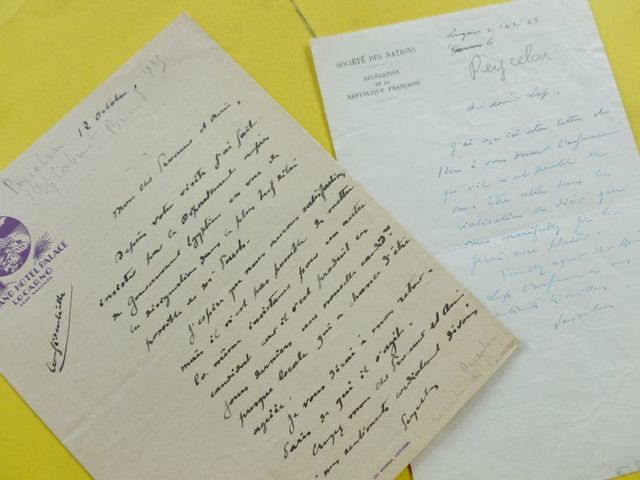 12 octobre, 1925
Peycelon
GRAND HOTEL PALACE
LOCARNO
Confidentielle
Mon cher Pierre et Ami,
Depuis votre visite j'ai fait
insister par le Département auprès
du Gouvernement Egyptien en vue de
la désignation dans le plus bref délai
possible de Mr
J'espère que nous aurons satisfaction
mais il n'est pas possible de mettre
la même insistance pour un autre
candidat car il s'est produit ces
jours derniers une nouvelle
presque locale qui a chance d'être
agréée.
Je vous dirai à mon retour à
Paris de quoi il s'agit.
Croyez mon cher et Ami
à mes sentiments cordialement dévoués
Peycelon
Peycelon
SOCIÉTÉ DES NATIONS
DÉLÉGATION
DE LA
RÉPUBLIQUE FRANÇAISE
Lugano le 14 28
Peycelon
Cher Monsieur
J'ai reçu ici votre lettre et
tiens à vous donner l'assurance
que s'il m'est possible de
vous être utile dans la
réalisation du désir que
vous manifestez je le
ferai avec plaisir.
Veuillez agréer cher
l'assurance de mes
sentiments les meilleurs
Peycelon